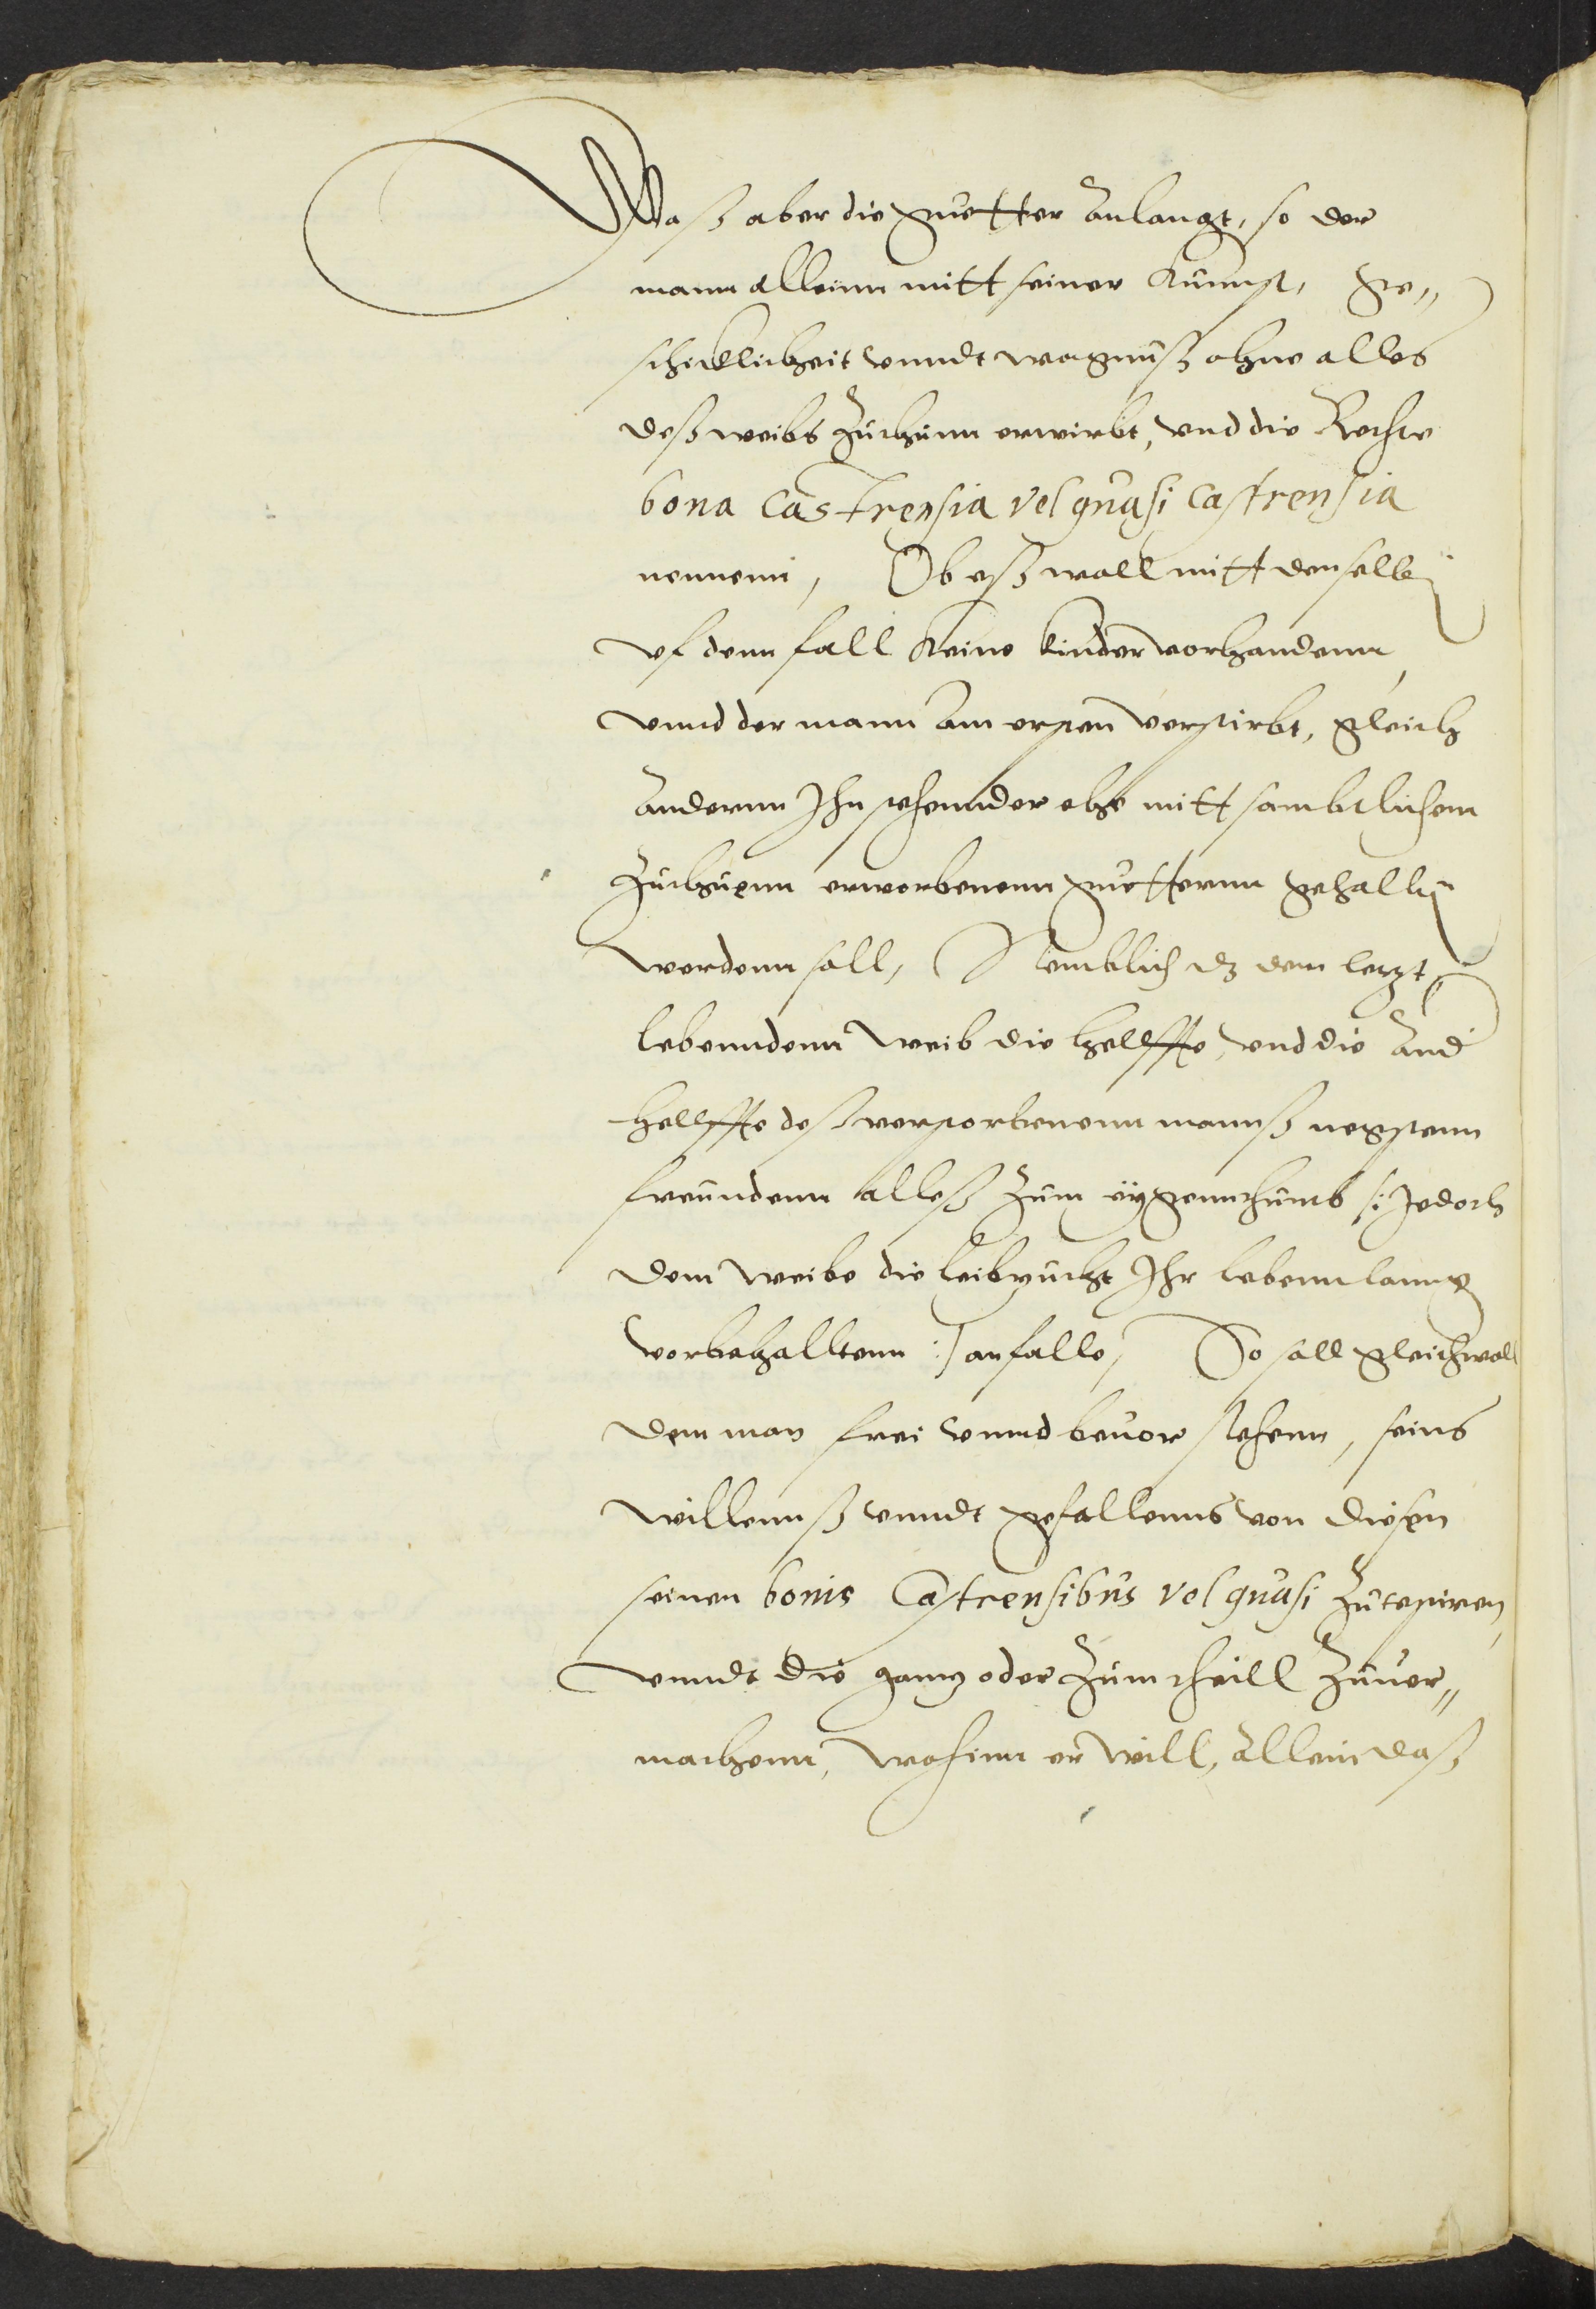 Waß aber die guetter anlangt, so der
mann allein mitt seiner Kunnst, Ge„
schicklicheit vnndt wagnuß ohne alles
deß weibs zuthunn erwirbt, vnd die Rechte
bona castrensia vel quasi castrensia
nennenn, Ob eß woll mitt denselben
vf denn fall keine kinder vorhandenn,
vnnd der mann am ersten verstirbt, gleich
anderenn Ihn stehennder ehe mitt sambtlichem
zuthuenn erworbenenn guetternn gehallten
werdenn soll, Nemblich dz dem lerzt
lebenndenn weib die hellffte, vnd die and
hellffte deß verstorbenenn mannß negstenn
freundenn alleß zum eygennthumb /: Jedoch
dem weibe die leibzucht Ihr lebennlanng
vorbehalltenn :/ anfalle, So soll gleichwoll
dem man frei vnnd beuor stehenn, seins
willennß vnndt gefallenns von diesen
seinen bonis Castrensibus vel quasi zutestiren,
vnndt die ganz oder zum theill zuuer„
machenn, wohinn er will, allein daß